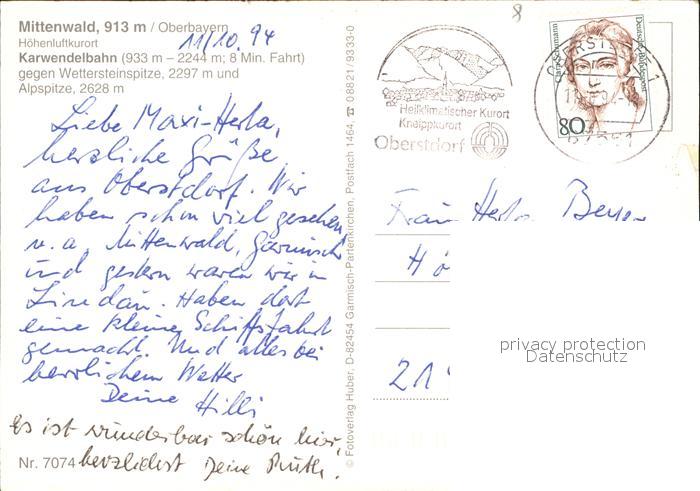 Mittenwald, 913 m / Oberbayern
11/10. 94
Höhenluftkurort
Karwendelbahn (933 m – 2244 m; 8 Min. Fahrt)
gegen Wettersteinspitze, 2297 m und
Alpspitze, 2628 m
Liebe Maxi-Herta,
herzliche Grüße
aus Oberstdorf. Wir
haben schon viel gesehen
u. a. Mittenwald, Garmisch
und gestern waren wir in
Lindau. Haben dort
eine kleine Schiffsfahrt
gemacht. Und alles bei
herrlichem Wetter
Deine Hilli
Es ist wunderbar schön hier,
herzlichst Deine Ruth.
Nr. 7074
© Fotoverlag Huber, D-82454 Garmisch-Partenkirchen, Postfach 1464, ☎ 08821/9333-0
8
Heilklimatischer Kurort
Kneippkurort
Oberstdorf
OBERSTDORF 1
87561
Clara Schumann
Deutsche Bundespost
80
Frau Herta
Hö
21
privacy protection
Datenschutz